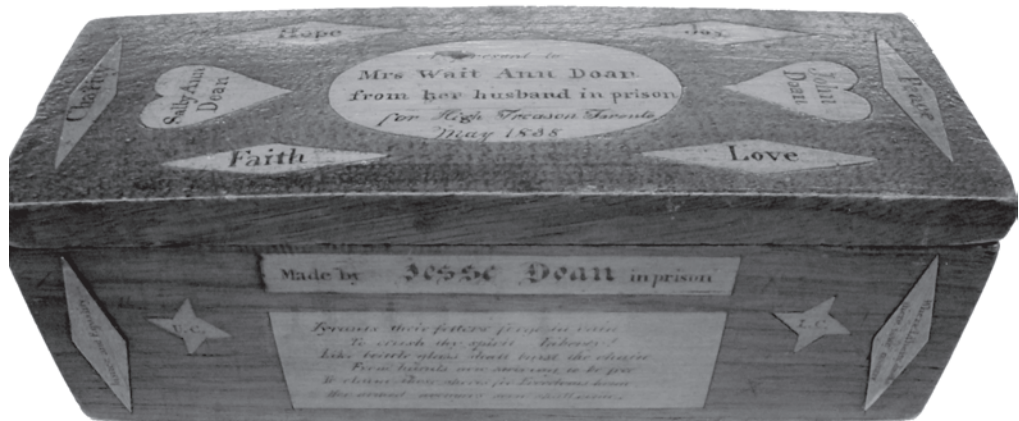 Hope
Joy
Charity
Sally Ann
Doan
present to
Mrs Wait Ann Doan
from her husband in prison
for High Treason Toronto
May 1838
John
Doan
Peace
Faith
Love
Made by Jesse Doan in prison
U.C.
L.C.
Tyrants their fetters forge in vain
To crush thy spirit liberty!
Like brittle glass shall burst the chain
From hands now striving to be free